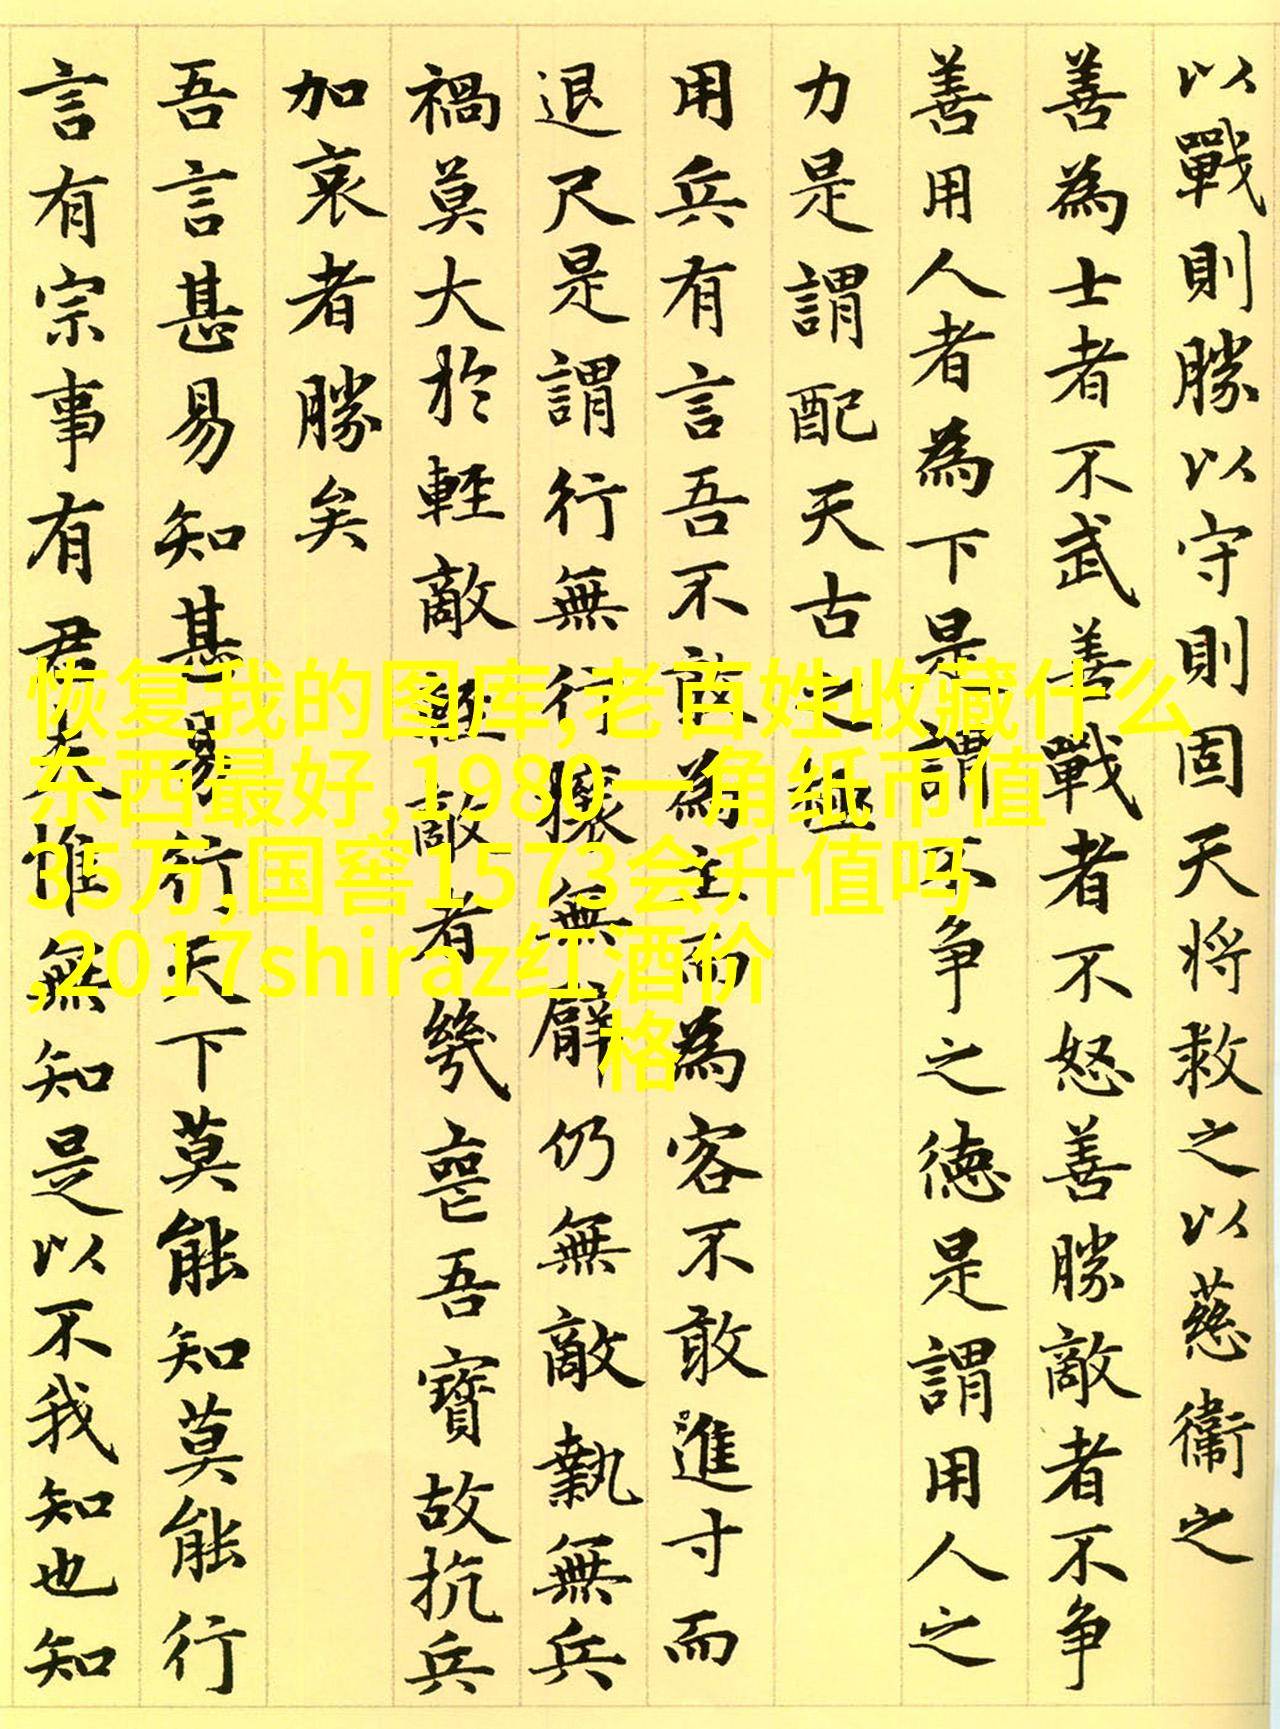 以戰則勝以守則固天将救之以慈衛之
善為士者不武善戰者不怒善勝敵者不争
善用人者為下是謂不争之徳是謂用人之
力是謂配天古之極
用兵有言吾不敢為主而為客不敢進寸而
退尺是謂行無行攘無臂仍無敵執無兵
禍莫大於輕敵輕敵者幾亡吾寶故抗兵
加哀者勝矣
吾言甚易知甚易行天下莫能知莫能行
言有宗事有君夫惟無知是以不我知也知
恢复我的图库,老百姓收藏什么
东西最好,1980一角纸币值
35万,国窖1573会升值吗
,2017shiraz红酒价
格